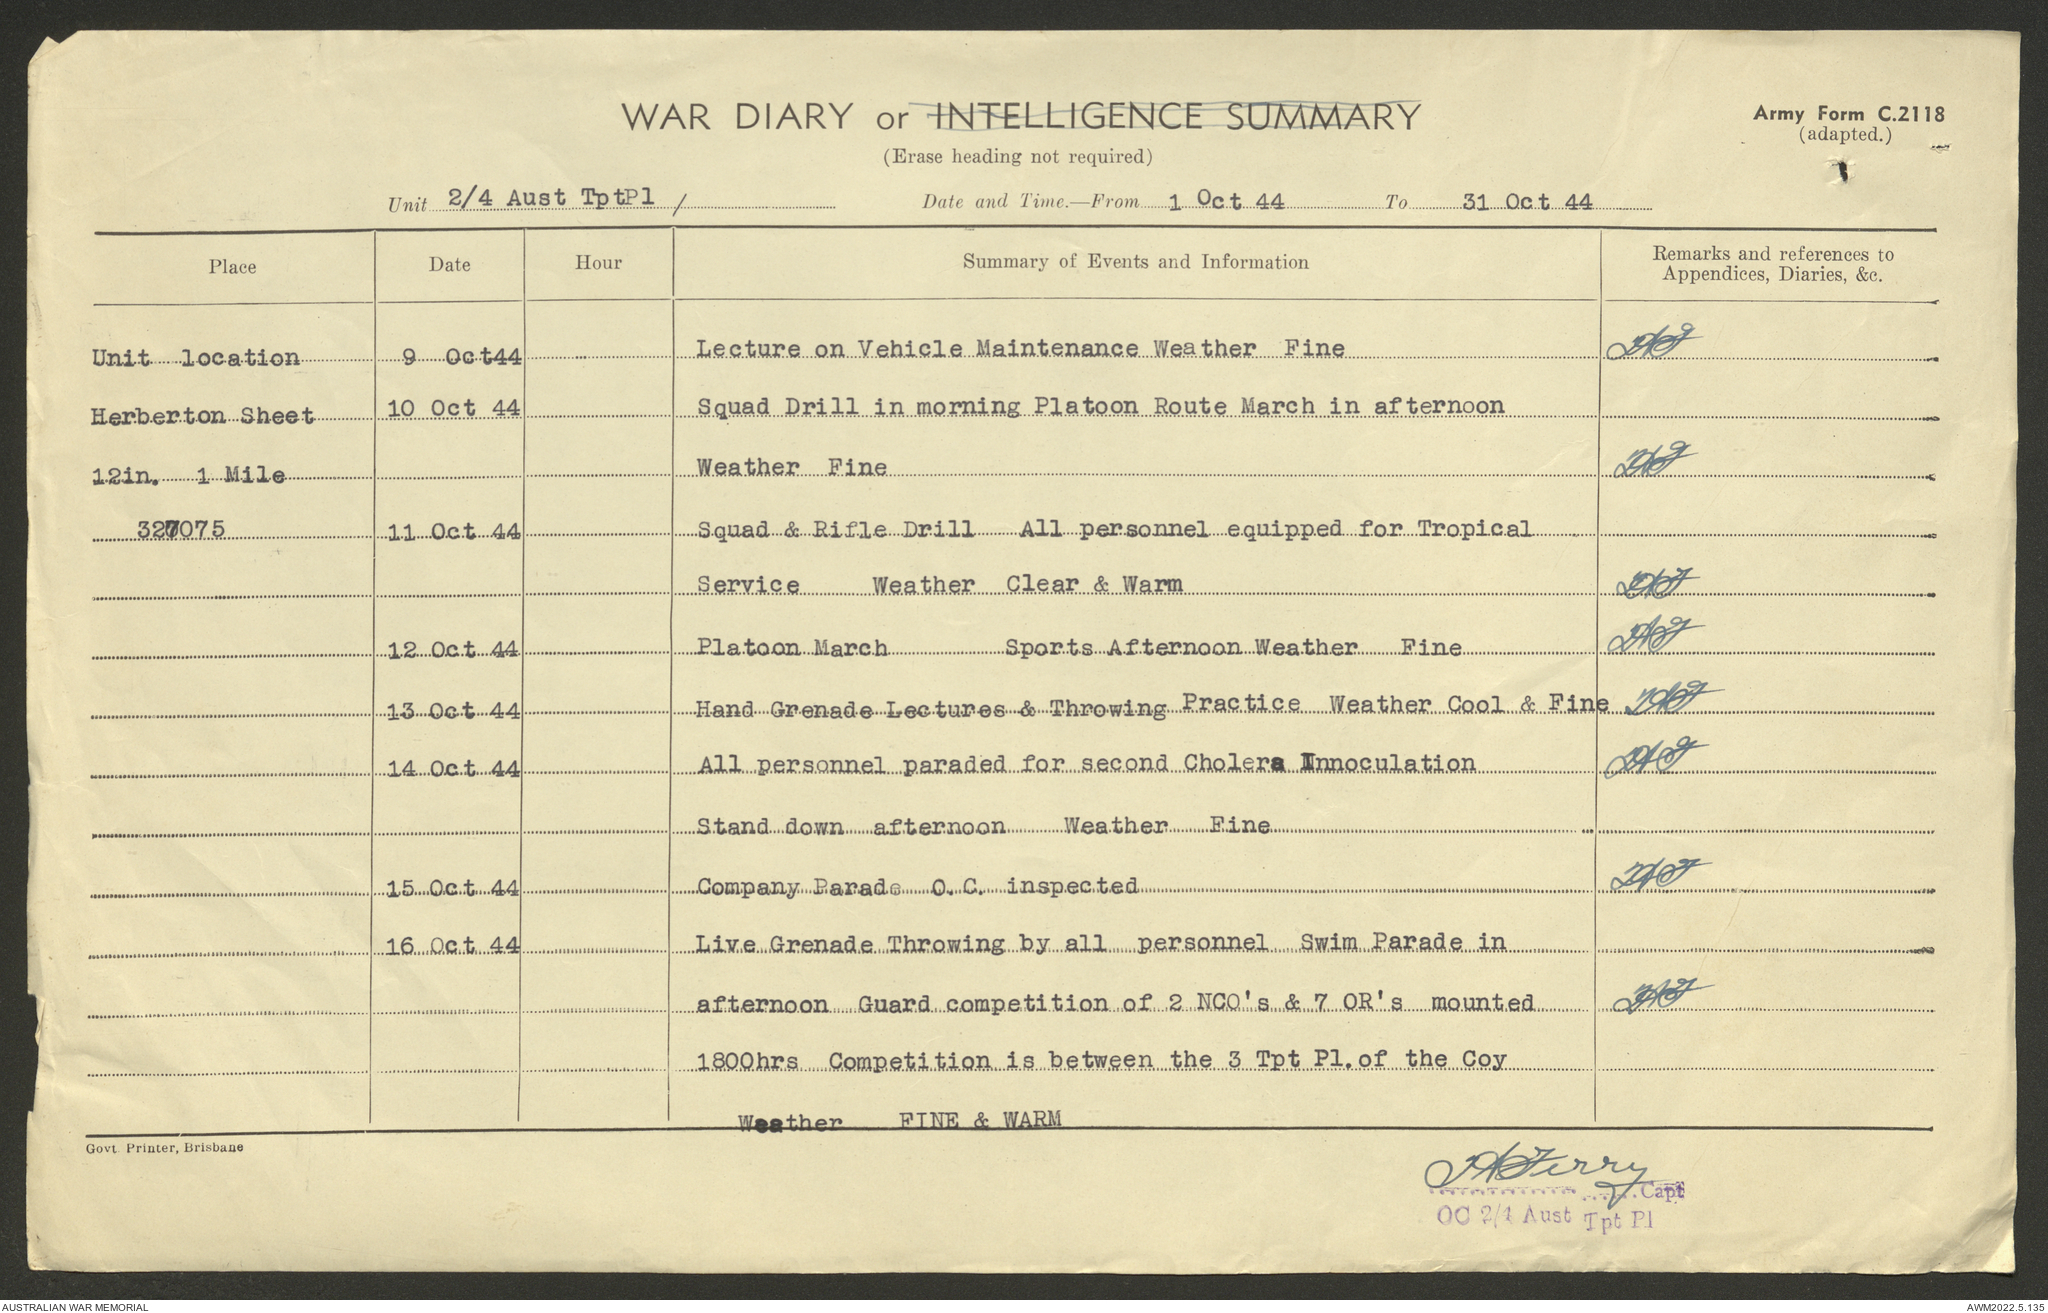 WAR DIARY or INTELLIGENCE SUMMARY
(Erase heading not required)
Army Form C.2118
(adapted.)
Unit 2/4 Aust TptPl / Date and Time.—From 1 Oct 44 To 31 Oct 44
Place Date Hour Summary of Events and Information Remarks and references to Appendices, Diaries, &c.
Unit location 9 Oct44 Lecture on Vehicle Maintenance Weather Fine
Herberton Sheet 10 Oct 44 Squad Drill in morning Platoon Route March in afternoon
12in. 1 Mile Weather Fine
327075 11 Oct 44 Squad & Rifle Drill All personnel equipped for Tropical
Service Weather Clear & Warm
12 Oct 44 Platoon March Sports Afternoon Weather Fine
13 Oct 44 Hand Grenade Lectures & Throwing Practice Weather Cool & Fine
14 Oct 44 All personnel paraded for second Cholera Innoculation
Stand down afternoon Weather Fine
15 Oct 44 Company Parade O.C. inspected
16 Oct 44 Live Grenade Throwing by all personnel Swim Parade in
afternoon Guard competition of 2 NCO's & 7 OR's mounted
1800hrs Competition is between the 3 Tpt Pl.of the Coy
Weather FINE & WARM
Govt Printer, Brisbane
Capt
OC 2/4 Aust Tpt Pl
AUSTRALIAN WAR MEMORIAL
AWM2022.5.135